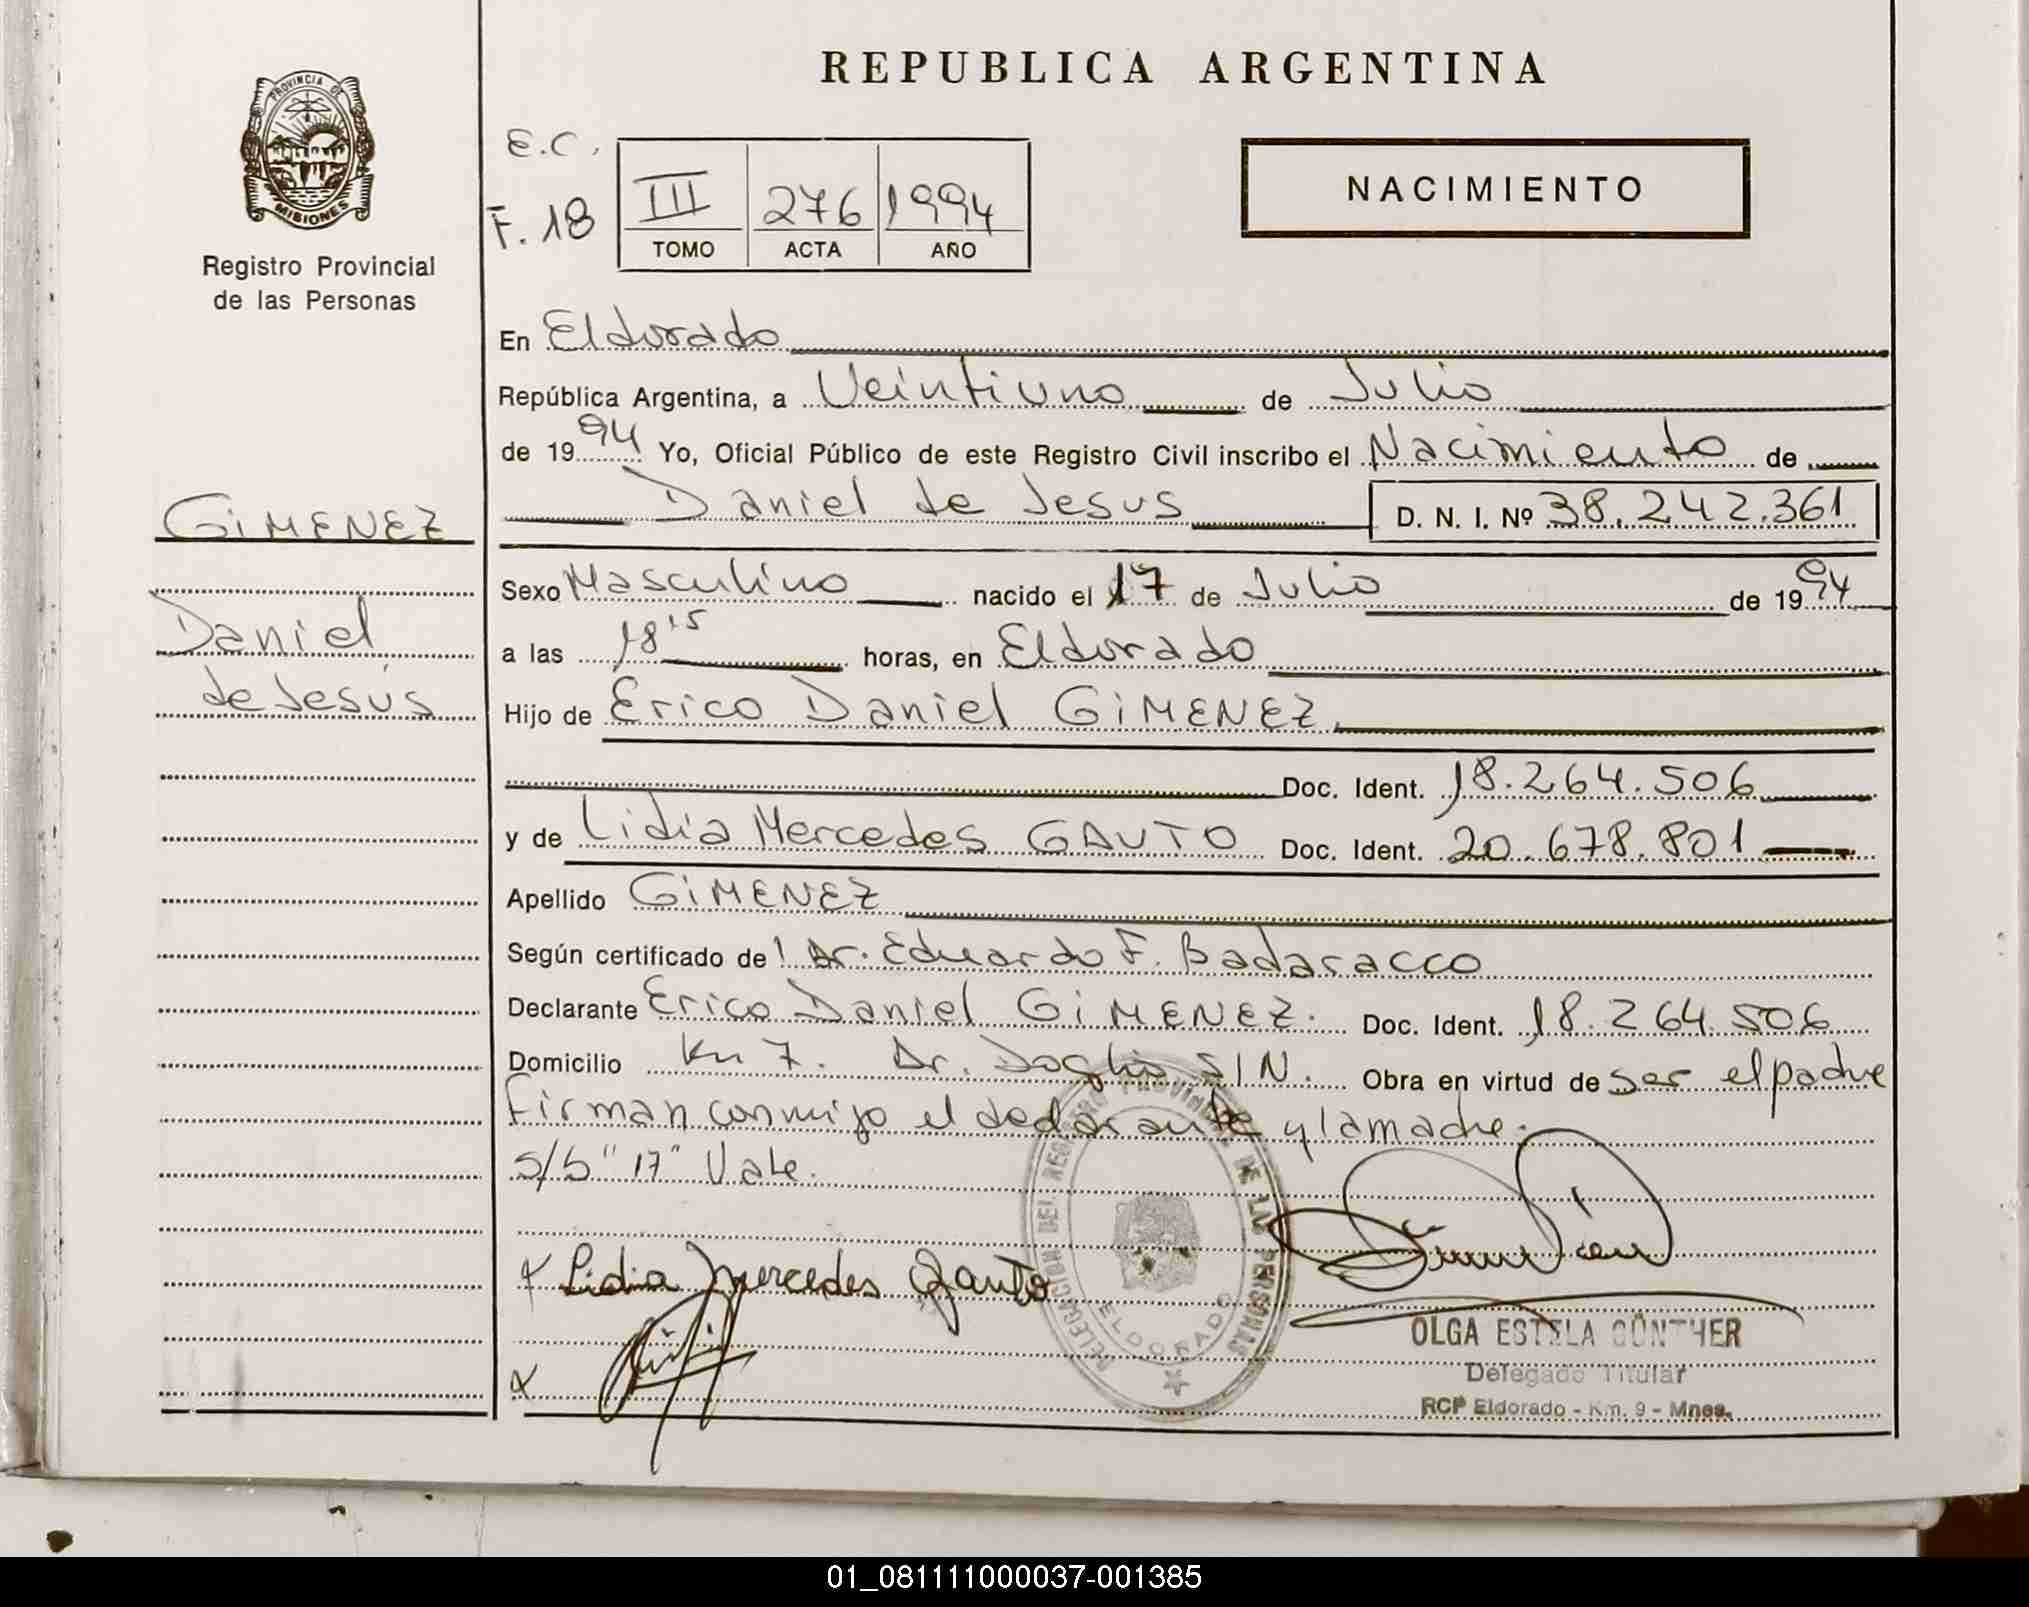 REPUBLICA ARGENTINA
PROVINCIA DE
MISIONES
Registro Provincial
de las Personas
E.C.
F. 18
III 276 1994
TOMO ACTA AÑO
NACIMIENTO
En Eldorado
República Argentina, a Veintiuno de Julio
de 1994 Yo, Oficial Público de este Registro Civil inscribo el Nacimiento de
Daniel de Jesus D. N. I. Nº 38.242.361
GIMENEZ
Daniel
de Jesús
Sexo Masculino nacido el 17 de Julio de 1994
a las 18 15 horas, en Eldorado
Hijo de Erico Daniel GIMENEZ
Doc. Ident. 18.264.506
y de Lidia Mercedes GAUTO Doc. Ident. 20.678.801
Apellido GIMENEZ
Según certificado de Dr. Eduardo F. Badaracco
Declarante Erico Daniel GIMENEZ. Doc. Ident. 18.264.506
Domicilio Km 7. Dr. S/N. Obra en virtud de ser el padre
Firman conmigo el declarante y la madre.
S/b "17" Vale.
Lidia Mercedes Gauto
DELEGACION DEL REGISTRO PROVINCIAL DE LAS PERSONAS
ELDORADO
OLGA ESTELA GÜNTHER
Delegado Titular
RCP Eldorado - Km. 9 - Mnes.
01_081111000037-001385